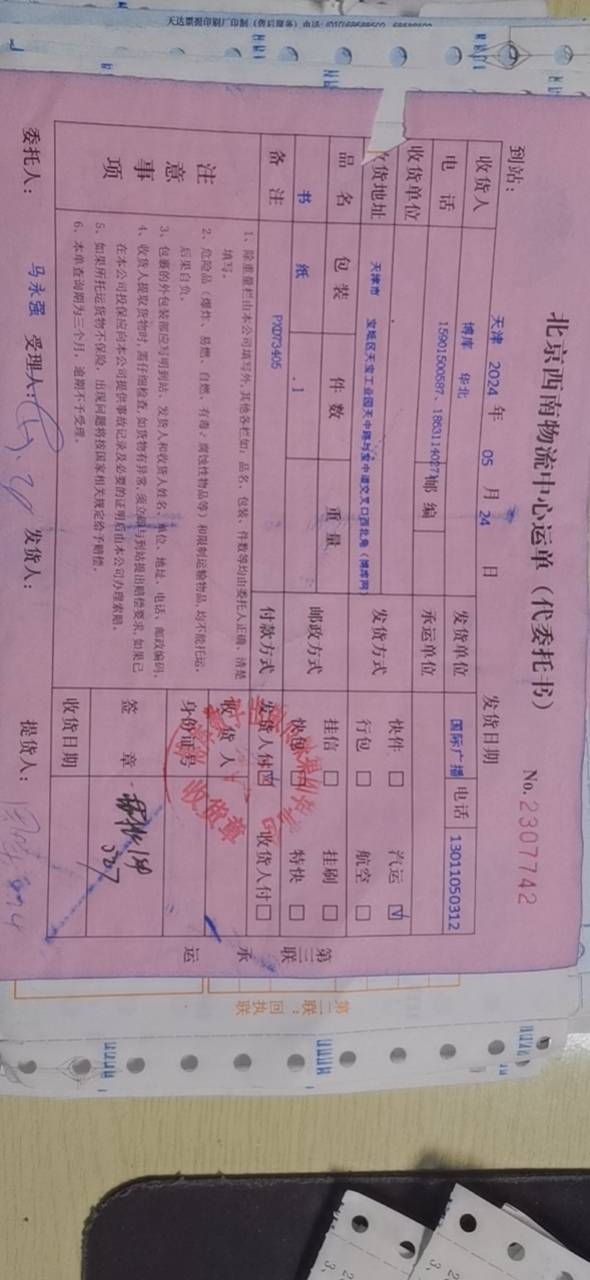 天达票据印刷厂印制（售后服务）电话:
北京西南物流中心运单（代委托书）
No. 2307742
到站：
天津 2024 年 05 月 24 日
发货日期
收货人 博库 华北
发货单位 国际广播 电话 13011050312
电话 15901500587、18631140271 邮编
承运单位
收货单位
发货方式 快件 □ 汽运 ☑
行包 □ 航空 □
货地址 天津市 宝坻区天宝工业园天中路与宝中道交叉口西北角（博库网
品名 包装 件数 重量
邮政方式 挂信 □ 挂刷 □
快包 □ 特快 □
书 纸 1
备注 PXD73405
付款方式 发货人付☑ 收货人付 □
注意事项
1、除重量栏由本公司填写外,其他各栏如：品名、包装、件数等均由委托人正确、清楚
填写。
2、危险品（爆炸、易燃、自燃、有毒、腐蚀性物品等）和限制运输物品,均不能托运,
后果自负。
3、包裹的外包装部应写明到站、发货人和收货人姓名、单位、地址、电话、邮政编码。
4、收货人提取货物时,需仔细检查,如货物有异常,须立即与到站提出赔偿要求,如果已
在本公司投保应向本公司提供事故记录及必要的证明后由本公司办理索赔。
5、如果所托运货物不保险，出现问题将按国家相关规定给予赔偿。
6、本单查询期为三个月，逾期不予受理。
收货人
身份证号
签章
收货日期
收货章
委托人： 马永强 受理人: 发货人： 提货人：
第三联 承运
第二联：回执联